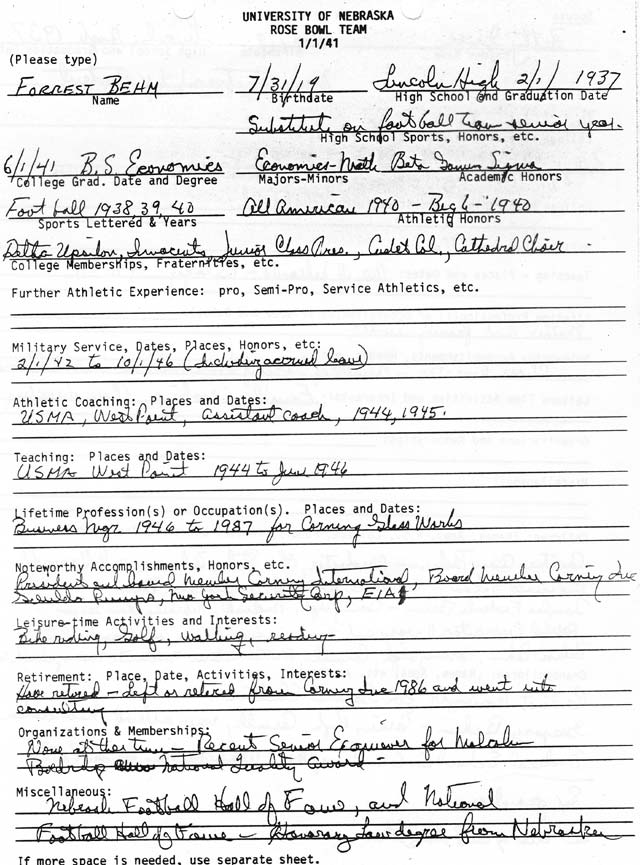 UNIVERSITY OF NEBRASKA
ROSE BOWL TEAM
1/1/41
(Please type)
FORREST BEHM 7/31/19 Lincoln High 2/1/1937
Name Birthdate High School and Graduation Date
Substitute on football team senior year.
High School Sports, Honors, etc.
6/1/41 B.S. Economics Economics-Math Beta Gamma Sigma
College Grad. Date and Degree Majors-Minors Academic Honors
Football 1938, 39, 40 All American 1940 - Big 6 - 1940
Sports Lettered & Years Athletic Honors
Delta Upsilon, Innocents, Junior Class Pres., Cadet Col., Cathedral Choir
College Memberships, Fraternities, etc.
Further Athletic Experience: pro, Semi-Pro, Service Athletics, etc.
Military Service, Dates, Places, Honors, etc:
2/1/42 to 10/1/46 (Including accrued leave)
Athletic Coaching: Places and Dates:
USMA, West Point, assistant coach, 1944, 1945.
Teaching: Places and Dates:
USMA West Point 1944 to June 1946
Lifetime Profession(s) or Occupation(s). Places and Dates:
Business Mgr. 1946 to 1987 for Corning Glass Works
Noteworthy Accomplishments, Honors, etc.
President and board member Corning International, Board Member Corning Inc
Goulds Pumps, New York Security Corp, EIA
Leisure-time Activities and Interests:
Bike riding, Golf, walking, reading
Retirement: Place, Date, Activities, Interests:
Have retired - Left as retired from Corning Inc 1986 and went into
consulting
Organizations & Memberships:
None at this time - Recent Senior Examiner for Malcolm
Baldridge National Quality Award -
Miscellaneous:
Nebraska Football Hall of Fame, and National
Football Hall of Fame - Honorary Law degree from Nebraska
If more space is needed, use separate sheet.